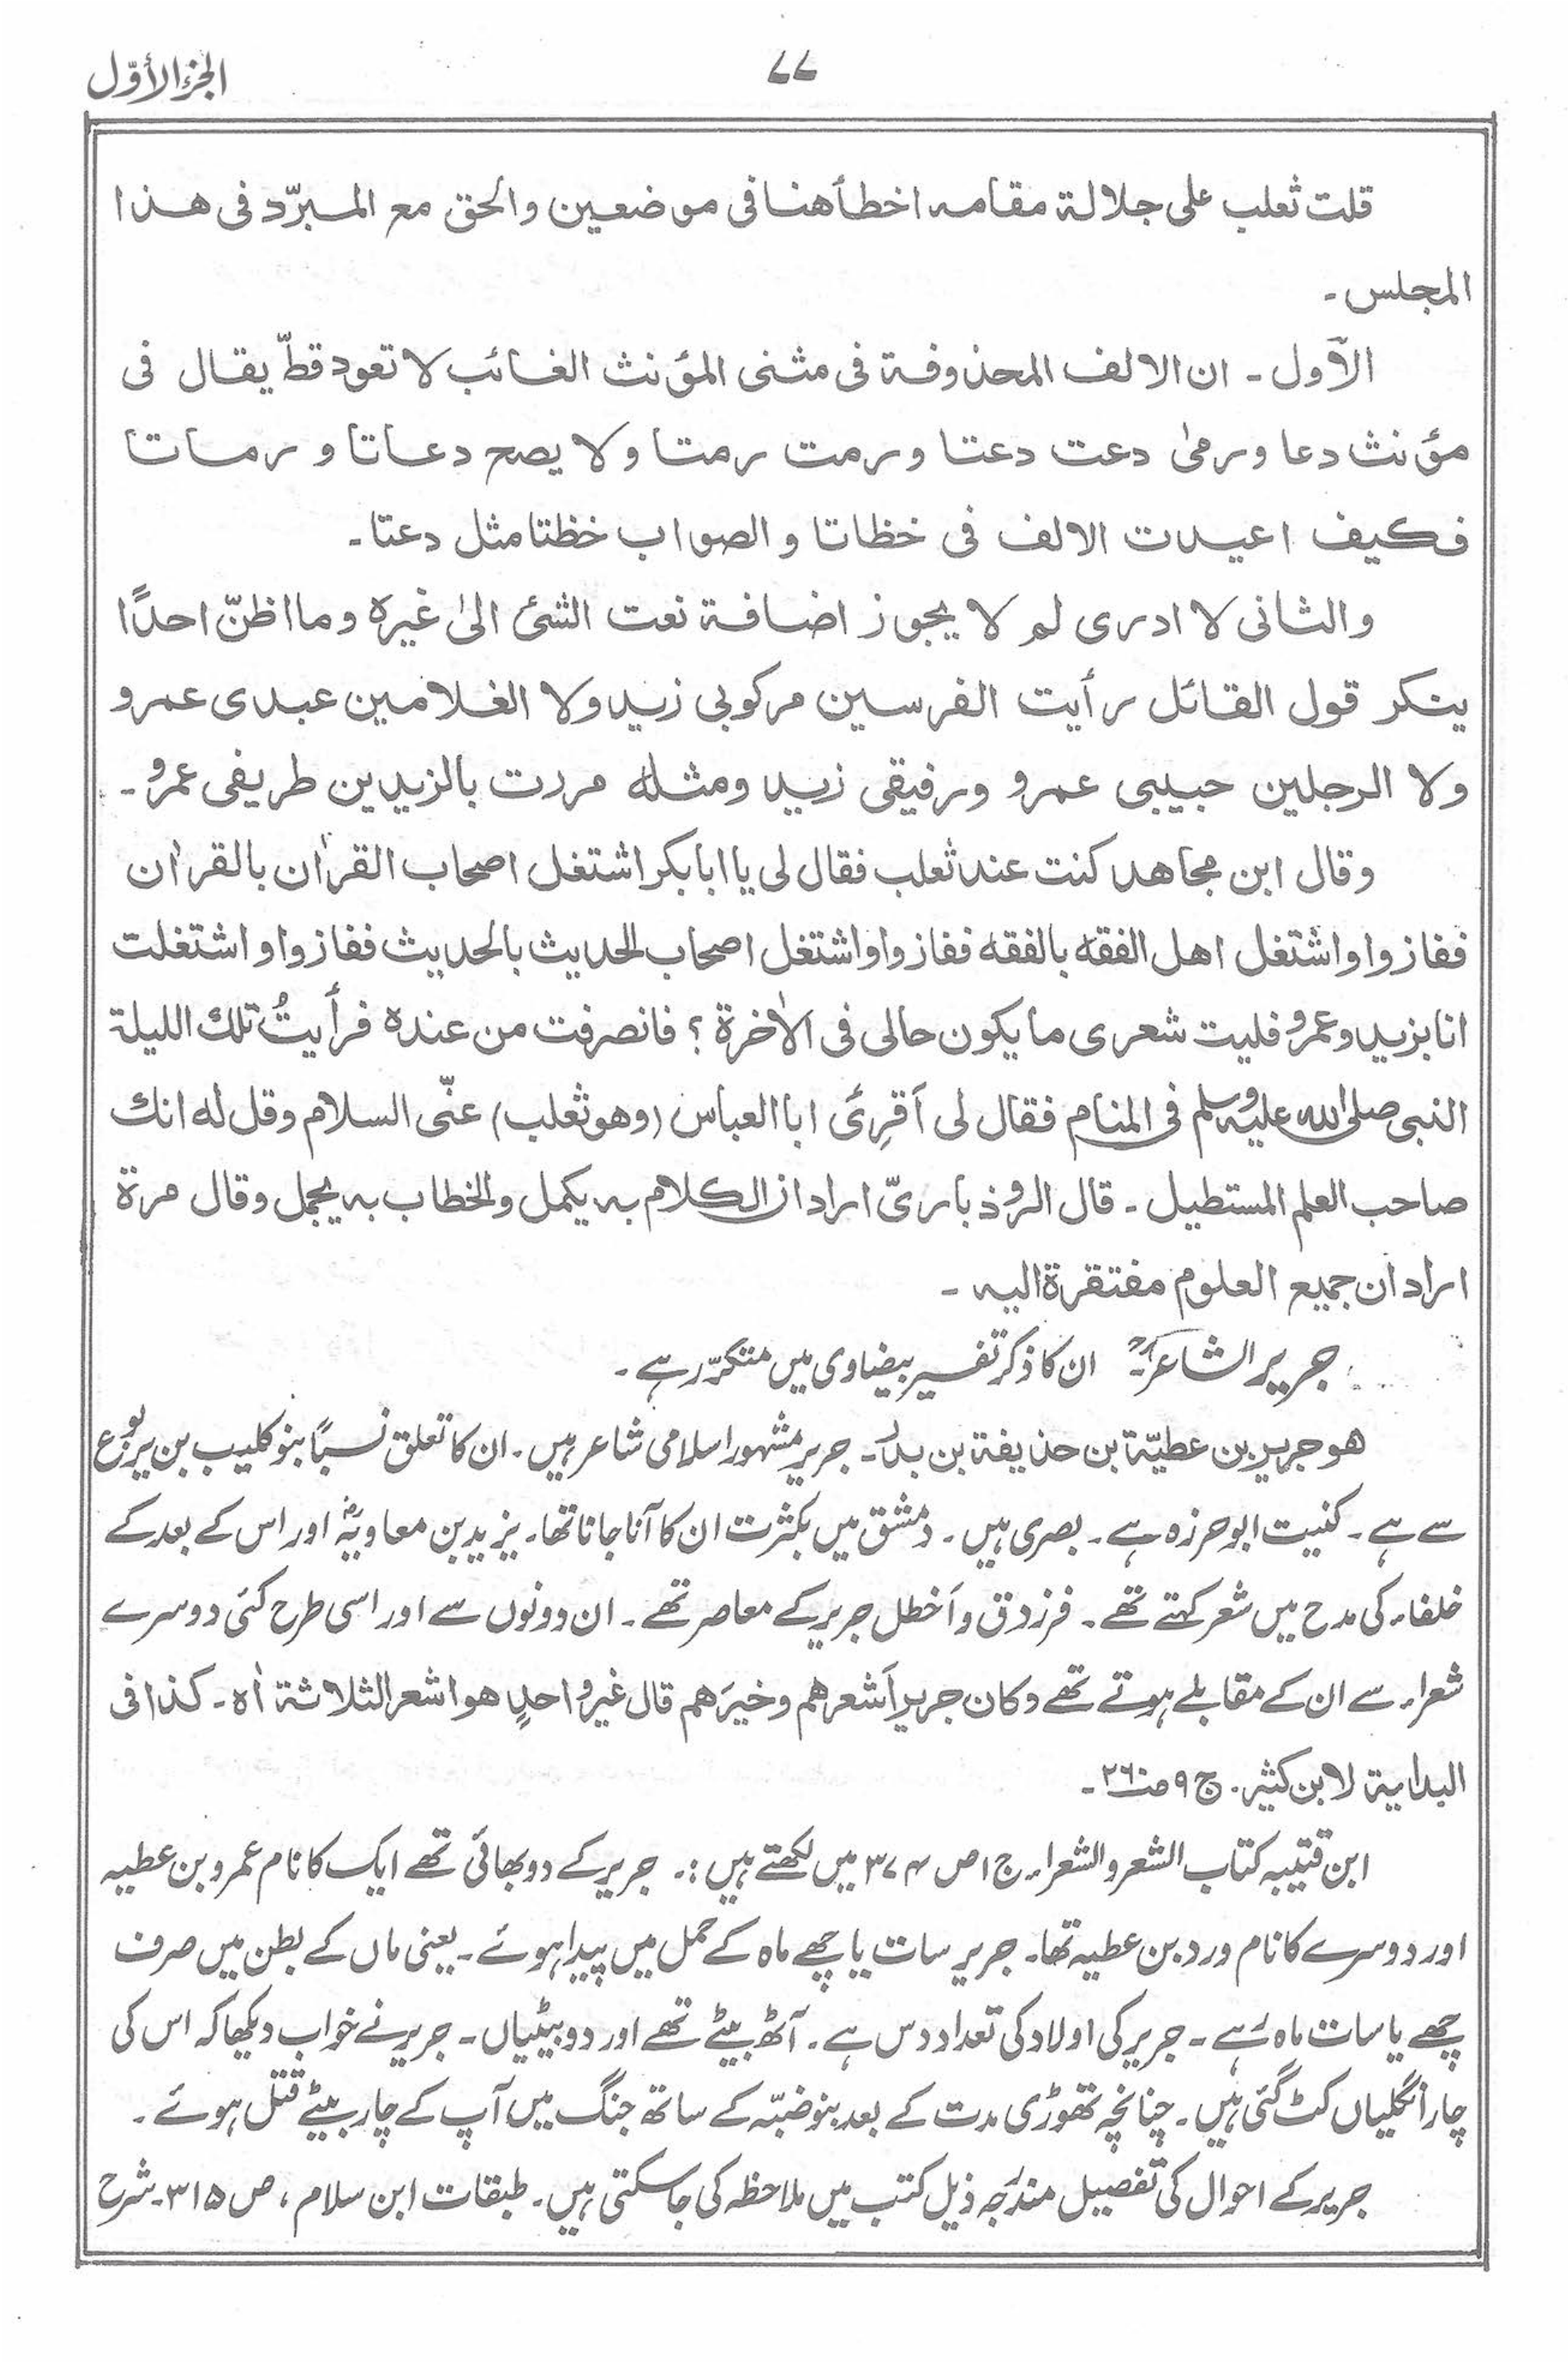 الجزء الأوّل
۷۷
قلت ثعلب على جلالة مقامه اخطأ هنا فى موضعين والحق مع المبرّد فى هذا
المجلس ۔
الاَول ۔ ان الالف المحذوفة فى مثنى المؤنث الغائب لا تعود قطّ يقال فى
مؤنث دعا ورمىٰ دعت دعتا ورمت رمتا ولا يصح دعاتا ورماتا
فكيف اعيدت الالف فى خظاتا والصواب خظتا مثل دعتا ۔
والثانى لا ادرى لم لا يجوز اضافة نعت الشئ الىٰ غيره وما اظنّ احدًا
ينكر قول القائل رأيت الفرسين مركوبى زيد ولا الغلامين عبدى عمرو
ولا الرجلين حبيبى عمرو ورفيقى زيد ومثله مررت بالزيدين طريفى عمرو ۔
وقال ابن مجاهد كنت عند ثعلب فقال لى يا ابا بكر اشتغل اصحاب القراٰن بالقراٰن
ففازوا واشتغل اهل الفقه بالفقه ففازوا واشتغل اصحاب الحديث بالحديث ففازوا واشتغلت
انا بزيد وعمرو فليت شعرى ما يكون حالى فى الاٰخرة ؟ فانصرفت من عنده فرأيتُ تلك الليلة
النبى صلى الله عليه وسلم فى المنام فقال لى اَقرِئ ابا العباس (وهو ثعلب) عنّى السلام وقل له انك
صاحب العلم المستطيل ۔ قال الروذبارىّ اراد ان الكلام به يكمل والخطاب به يجمل وقال مرة
اراد ان جميع العلوم مفتقرة اليه ۔
جرير الشاعرؒ ۔ ان کا ذکر تفسیر بیضاوی میں متکرّر ہے ۔
هو جرير بن عطيّة بن حذيفة بن بدر ۔ جریر مشہور اسلامی شاعر ہیں ۔ ان کا تعلق نسباً بنو کلیب بن یربوع
سے ہے ۔ کنیت ابو حرزہ ہے ۔ بصری ہیں ۔ دمشق میں بکثرت ان کا آنا جانا تھا ۔ یزید بن معاویہؓ اور اس کے بعد کے
خلفاء کی مدح میں شعر کہتے تھے ۔ فرزدق و اَخطل جریر کے معاصر تھے ۔ ان دونوں سے اور اسی طرح کئی دوسرے
شعراء سے ان کے مقابلے ہوتے تھے وكان جرير اَشعرهم وخيرَهم قال غير واحدٍ هو اشعر الثلاثة اٰه ۔ كذا فى
البداية لابن كثير ۔ ج ۹ ص ۲۶۰ ۔
ابن قتیبہ کتاب الشعر والشعراء ج ۱ ص ۳۷۴ میں لکھتے ہیں :۔ جریر کے دو بھائی تھے ایک کا نام عمرو بن عطیہ
اور دوسرے کا نام ورد بن عطیہ تھا ۔ جریر سات یا چھے ماہ کے حمل میں پیدا ہوئے ۔ یعنی ماں کے بطن میں صرف
چھے یا سات ماہ رہے ۔ جریر کی اولاد کی تعداد دس ہے ۔ آٹھ بیٹے تھے اور دو بیٹیاں ۔ جریر نے خواب دیکھا کہ اس کی
چار انگلیاں کٹ گئی ہیں ۔ چنانچہ تھوڑی مدت کے بعد بنو ضبّہ کے ساتھ جنگ میں آپ کے چار بیٹے قتل ہوئے ۔
جریر کے احوال کی تفصیل مندرجہ ذیل کتب میں ملاحظہ کی جا سکتی ہیں ۔ طبقات ابن سلام ، ص ۳۱۵ ۔ شرح